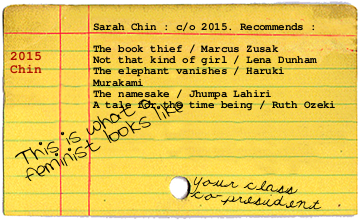 Sarah Chin : c/o 2015. Recommends :
2015
Chin
The book thief / Marcus Zusak
Not that kind of girl / Lena Dunham
The elephant vanishes / Haruki
Murakami
The namesake / Jhumpa Lahiri
A tale for the time being / Ruth Ozeki
This is what a
feminist looks like
your class
co-president